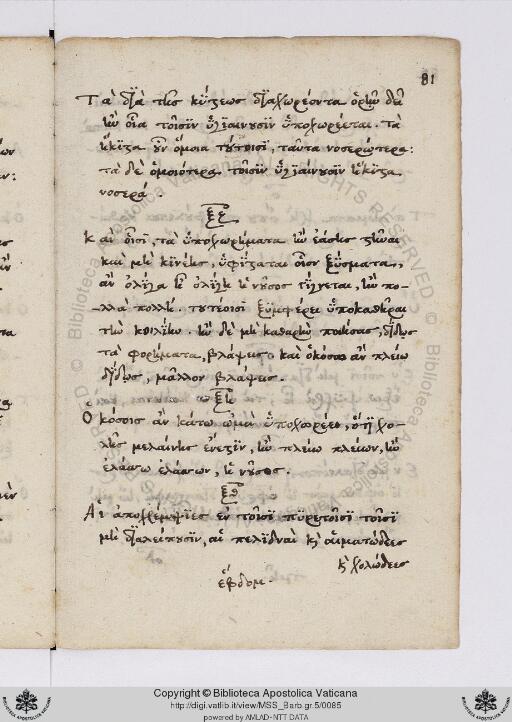 81
Τὰ διὰ τῆς κύστεως διαχωρέοντα ὁρῆν δεῖ
ἢν οἷα τοῖσιν ὑγιαίνουσιν ὑποχωρέεται. τὰ
ἥκιστα οὖν ὅμοια τούτοισι, ταῦτα νοσερώτερα:
τὰ δὲ ὁμοιότερα τοῖσιν ὑγιαίνουσιν ἥκιστα
νοσερά.
ξζ
Καὶ οἷσι, τὰ ὑποχωρήματα ἢν ἐάσῃς στῆναι
καὶ μὴ κινέῃς, ὑφίσταται οἷον ξύσματα,
ἂν ὀλίγα ᾖ ὀλίγη ἡ νοῦσος γίγνεται, ἢν πο-
λλὰ πολλή. τουτέοισι ξυμφέρει ὑποκαθῆραι
τὴν κοιλίην. ἢν δὲ μὴ καθαρὴν ποιήσας, δίδως
τὰ ῥοφήματα, βλάψεις. καὶ ὁκόσῳ ἂν πλείω
δίδως, μᾶλλον βλάψεις.
ξη
Ὁκόσοις ἂν κάτω ὠμὰ ὑποχωρέει, ἀπὸ χο-
λῆς μελαίνης ἐστὶν, ἢν πλείω πλείων, ἢν
ἐλάσσω ἐλάσσων, ἡ νοῦσος.
ξθ
Αἱ ἀποχρέμψιες ἐν τοῖσι πυρετοῖσι τοῖσι
μὴ διαλείπουσιν, αἱ πελιδναὶ καὶ αἱματώδεες
καὶ χολώδεες
ἑβδομ.
Copyright © Biblioteca Apostolica Vaticana
http://digi.vatlib.it/view/MSS_Barb.gr.5/0085
powered by AMLAD-NTT DATA